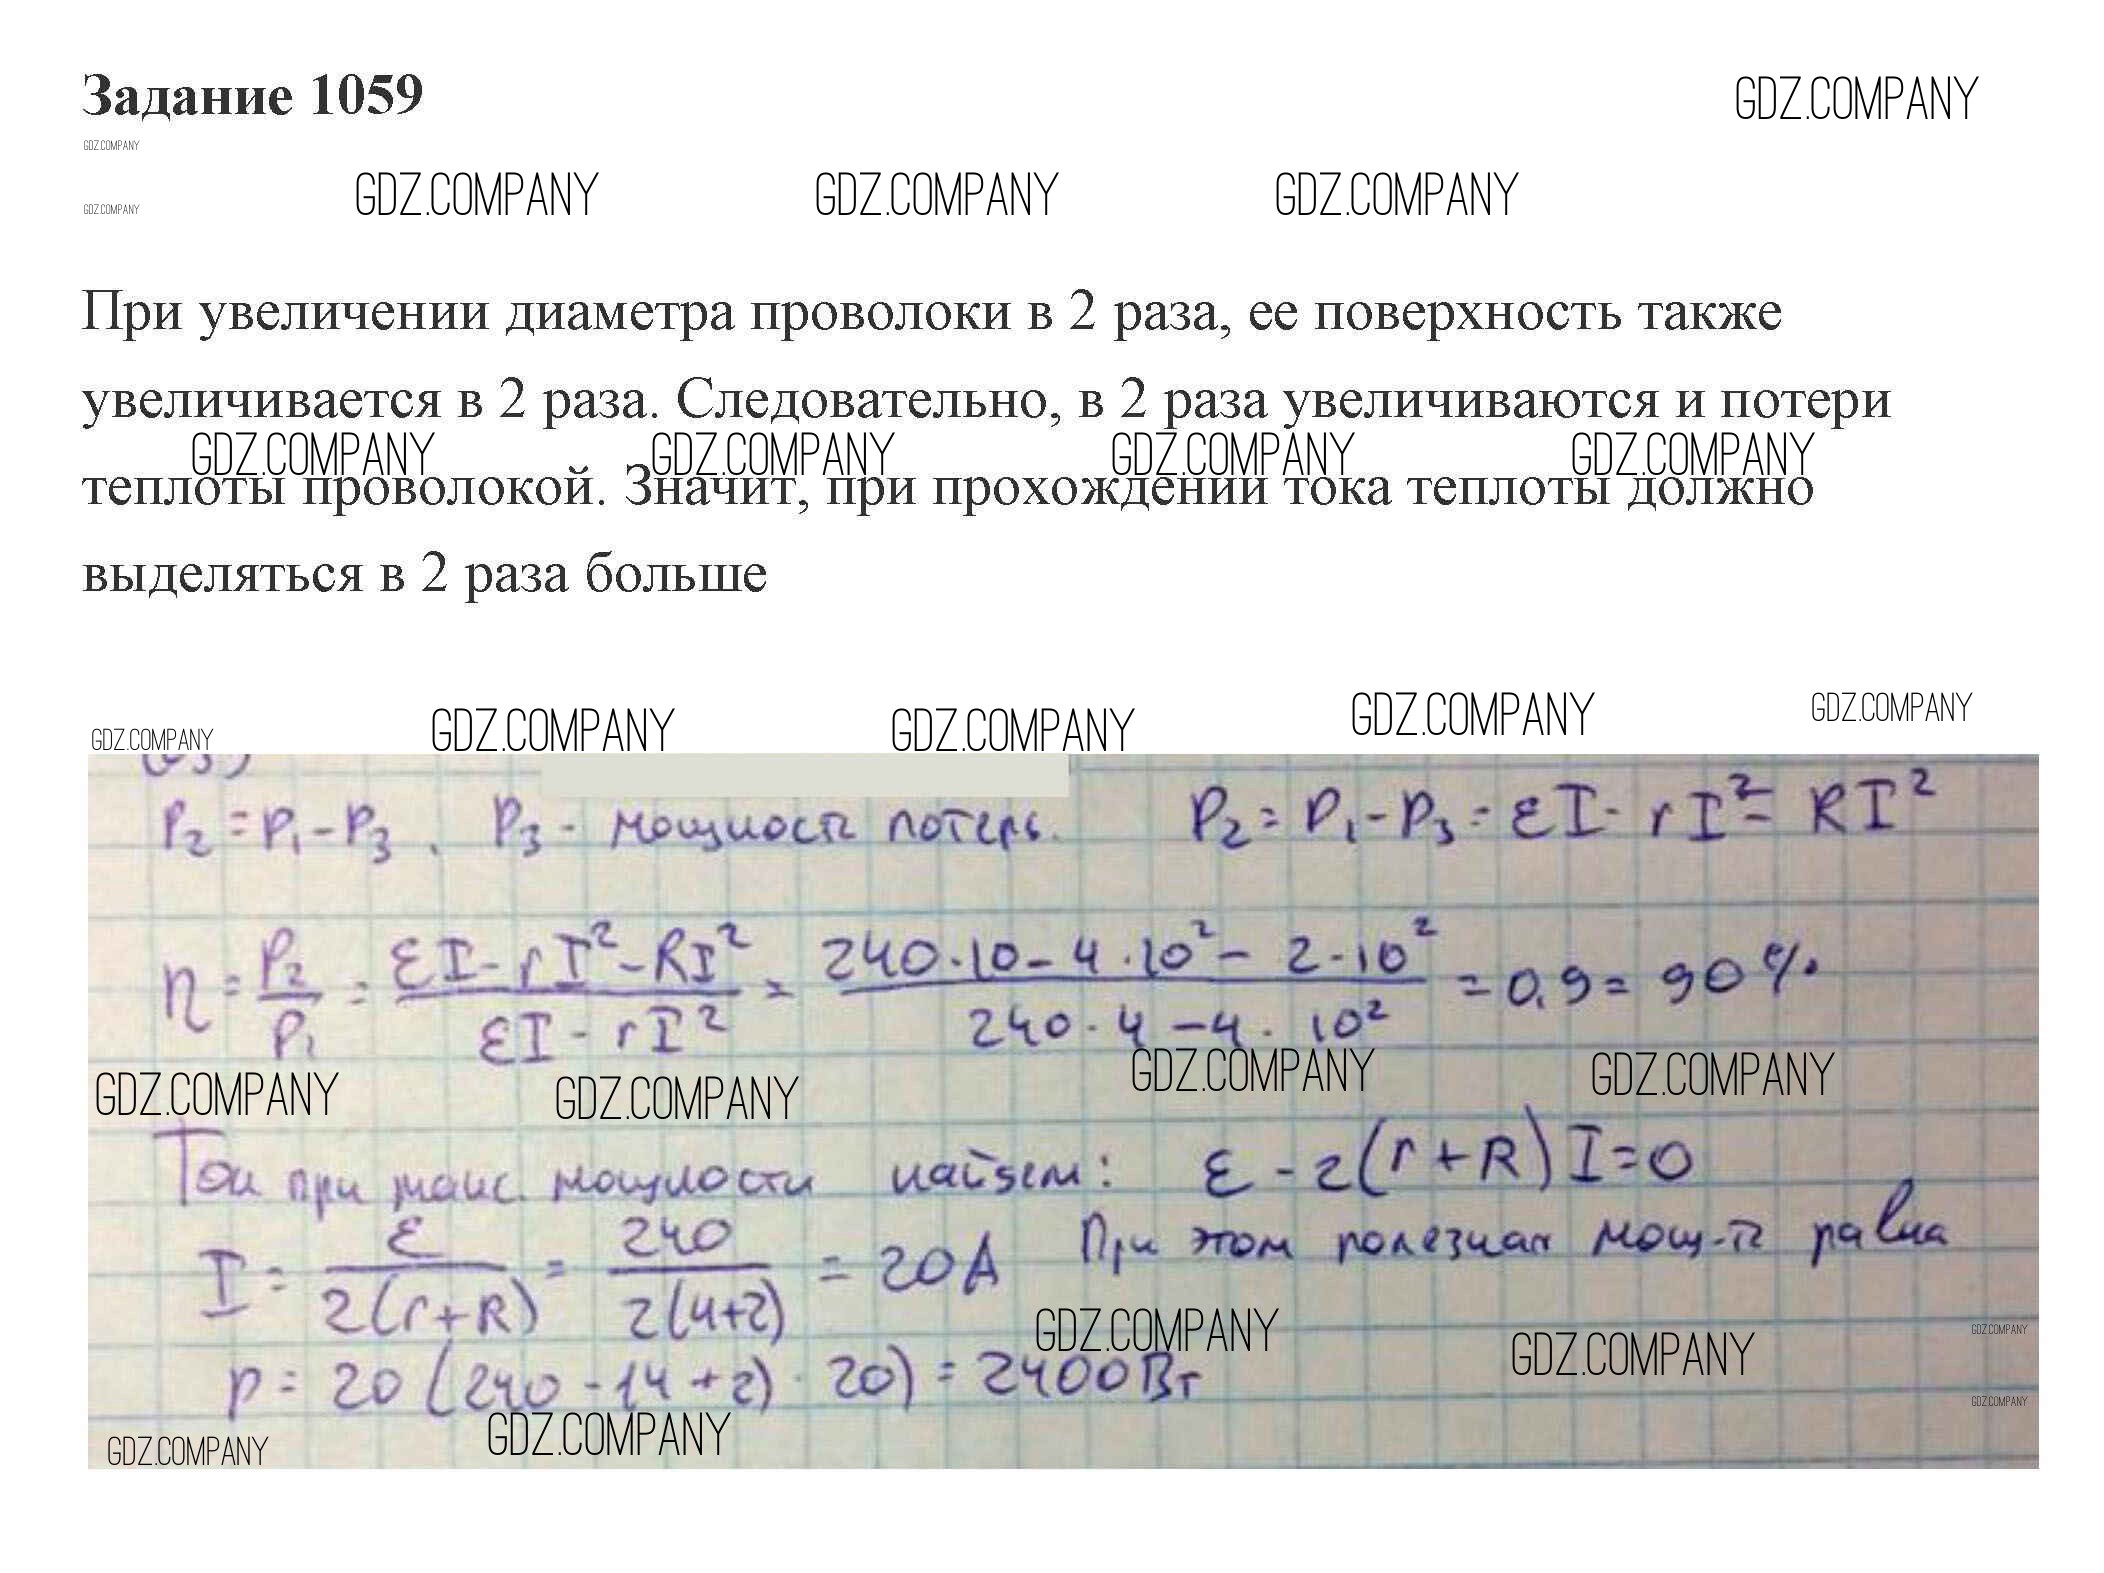 Задание 1059
GDZ.COMPANY
GDZ.COMPANY
GDZ.COMPANY GDZ.COMPANY GDZ.COMPANY
GDZ.COMPANY
При увеличении диаметра проволоки в 2 раза, ее поверхность также
увеличивается в 2 раза. Следовательно, в 2 раза увеличиваются и потери
GDZ.COMPANY GDZ.COMPANY GDZ.COMPANY GDZ.COMPANY
теплоты проволокой. Значит, при прохождении тока теплоты должно
выделяться в 2 раза больше
GDZ.COMPANY GDZ.COMPANY GDZ.COMPANY GDZ.COMPANY GDZ.COMPANY
P₂ = P₁ - P₃, P₃ - мощность потерь. P₂ = P₁ - P₃ = εI - rI² = RI²
η = P₂/P₁ = (εI - rI² - RI²)/(εI - rI²) = (240·10 - 4·10² - 2·10²)/(240·4 - 4·10²) = 0,9 = 90%
GDZ.COMPANY GDZ.COMPANY GDZ.COMPANY GDZ.COMPANY
Ток при макс. мощности найдем: ε - 2(r+R)I = 0
I = ε/(2(r+R)) = 240/(2(4+2)) = 20A При этом полезная мощ-ть равна
GDZ.COMPANY GDZ.COMPANY GDZ.COMPANY
p = 20(240 - 14 + 2)·20) = 2400Вт
GDZ.COMPANY
GDZ.COMPANY GDZ.COMPANY